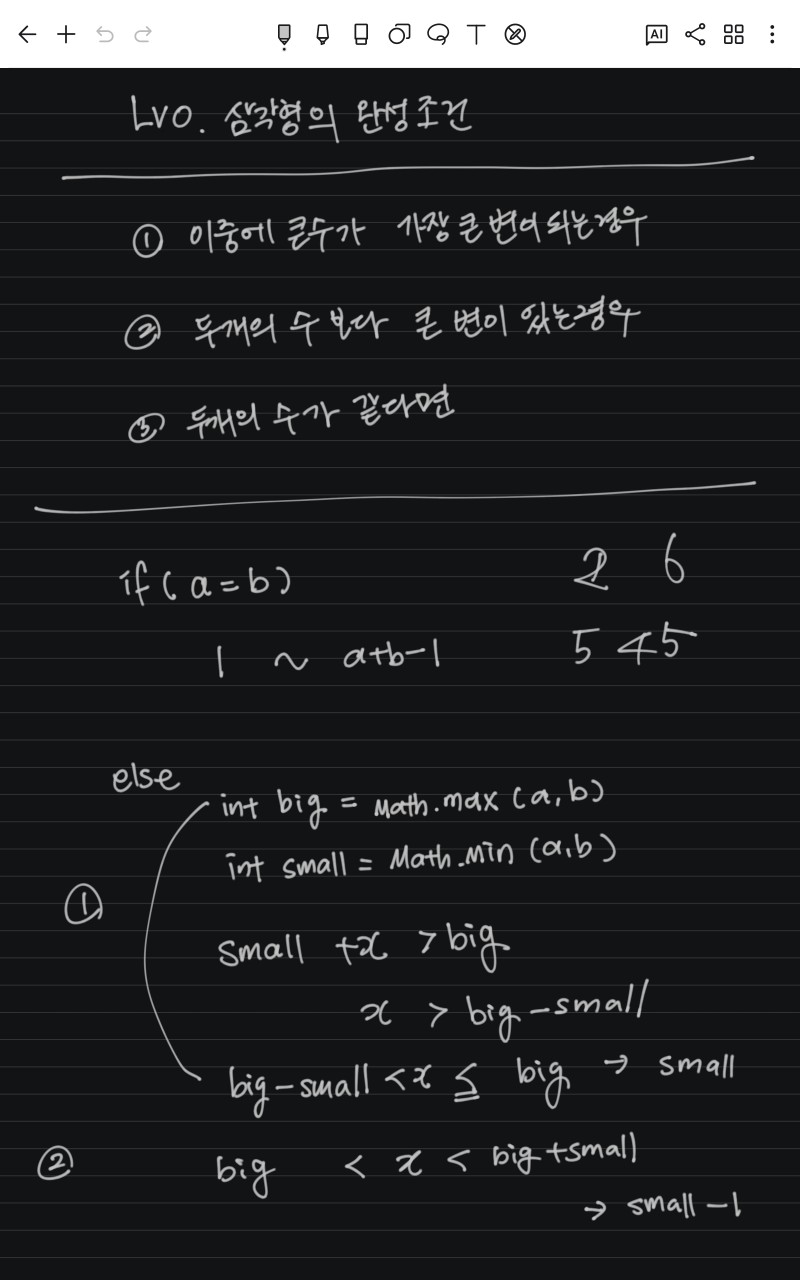 AI
Lv0. 삼각형의 완성조건
① 이중에 큰수가 가장 큰 변이 되는경우
② 두개의 수 보다 큰 변이 있는경우
③ 두개의 수가 같다면
if ( a = b ) 2 6
1 ~ a+b-1 5 4 5
else
int big = Math.max (a, b)
int small = Math.min (a,b)
①
small + x > big
x > big - small
big - small < x ≦ big → small
② big < x < big + small
→ small - 1